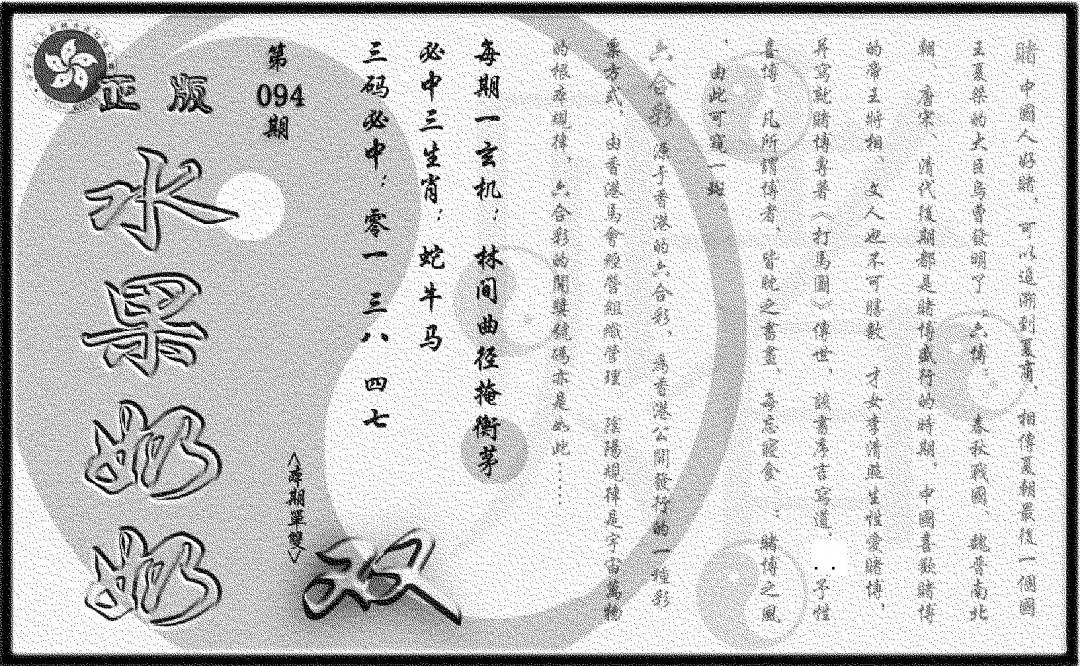 賭 中國人好賭，可以追溯到夏商，相傳夏朝最後一個國
王夏桀的大臣烏曹發明了“六博”。春秋戰國、魏晉南北
朝、唐宋、清代後期都是賭博盛行的時期。中國喜歡賭博
的帝王將相、文人也不可勝數，才女李清照生性愛賭博，
并寫就賭博專著《打馬圖》傳世，該書序言寫道：予性
喜博，凡所謂博者，皆耽之晝晝，每忘寢食；賭博之風
，由此可窺一斑。
六合彩 源于香港的六合彩，為香港公開發行的一種彩
票方式，由香港馬會經營組織管理。陰陽規律是宇宙萬物
的根本規律，六合彩的開獎號碼亦是如此……
每期一玄机：林间曲径掩衡茅
必中三生肖：蛇牛马
三码必中：零一 三八 四七
第094期
<本期單雙>
双
正版
水果奶奶